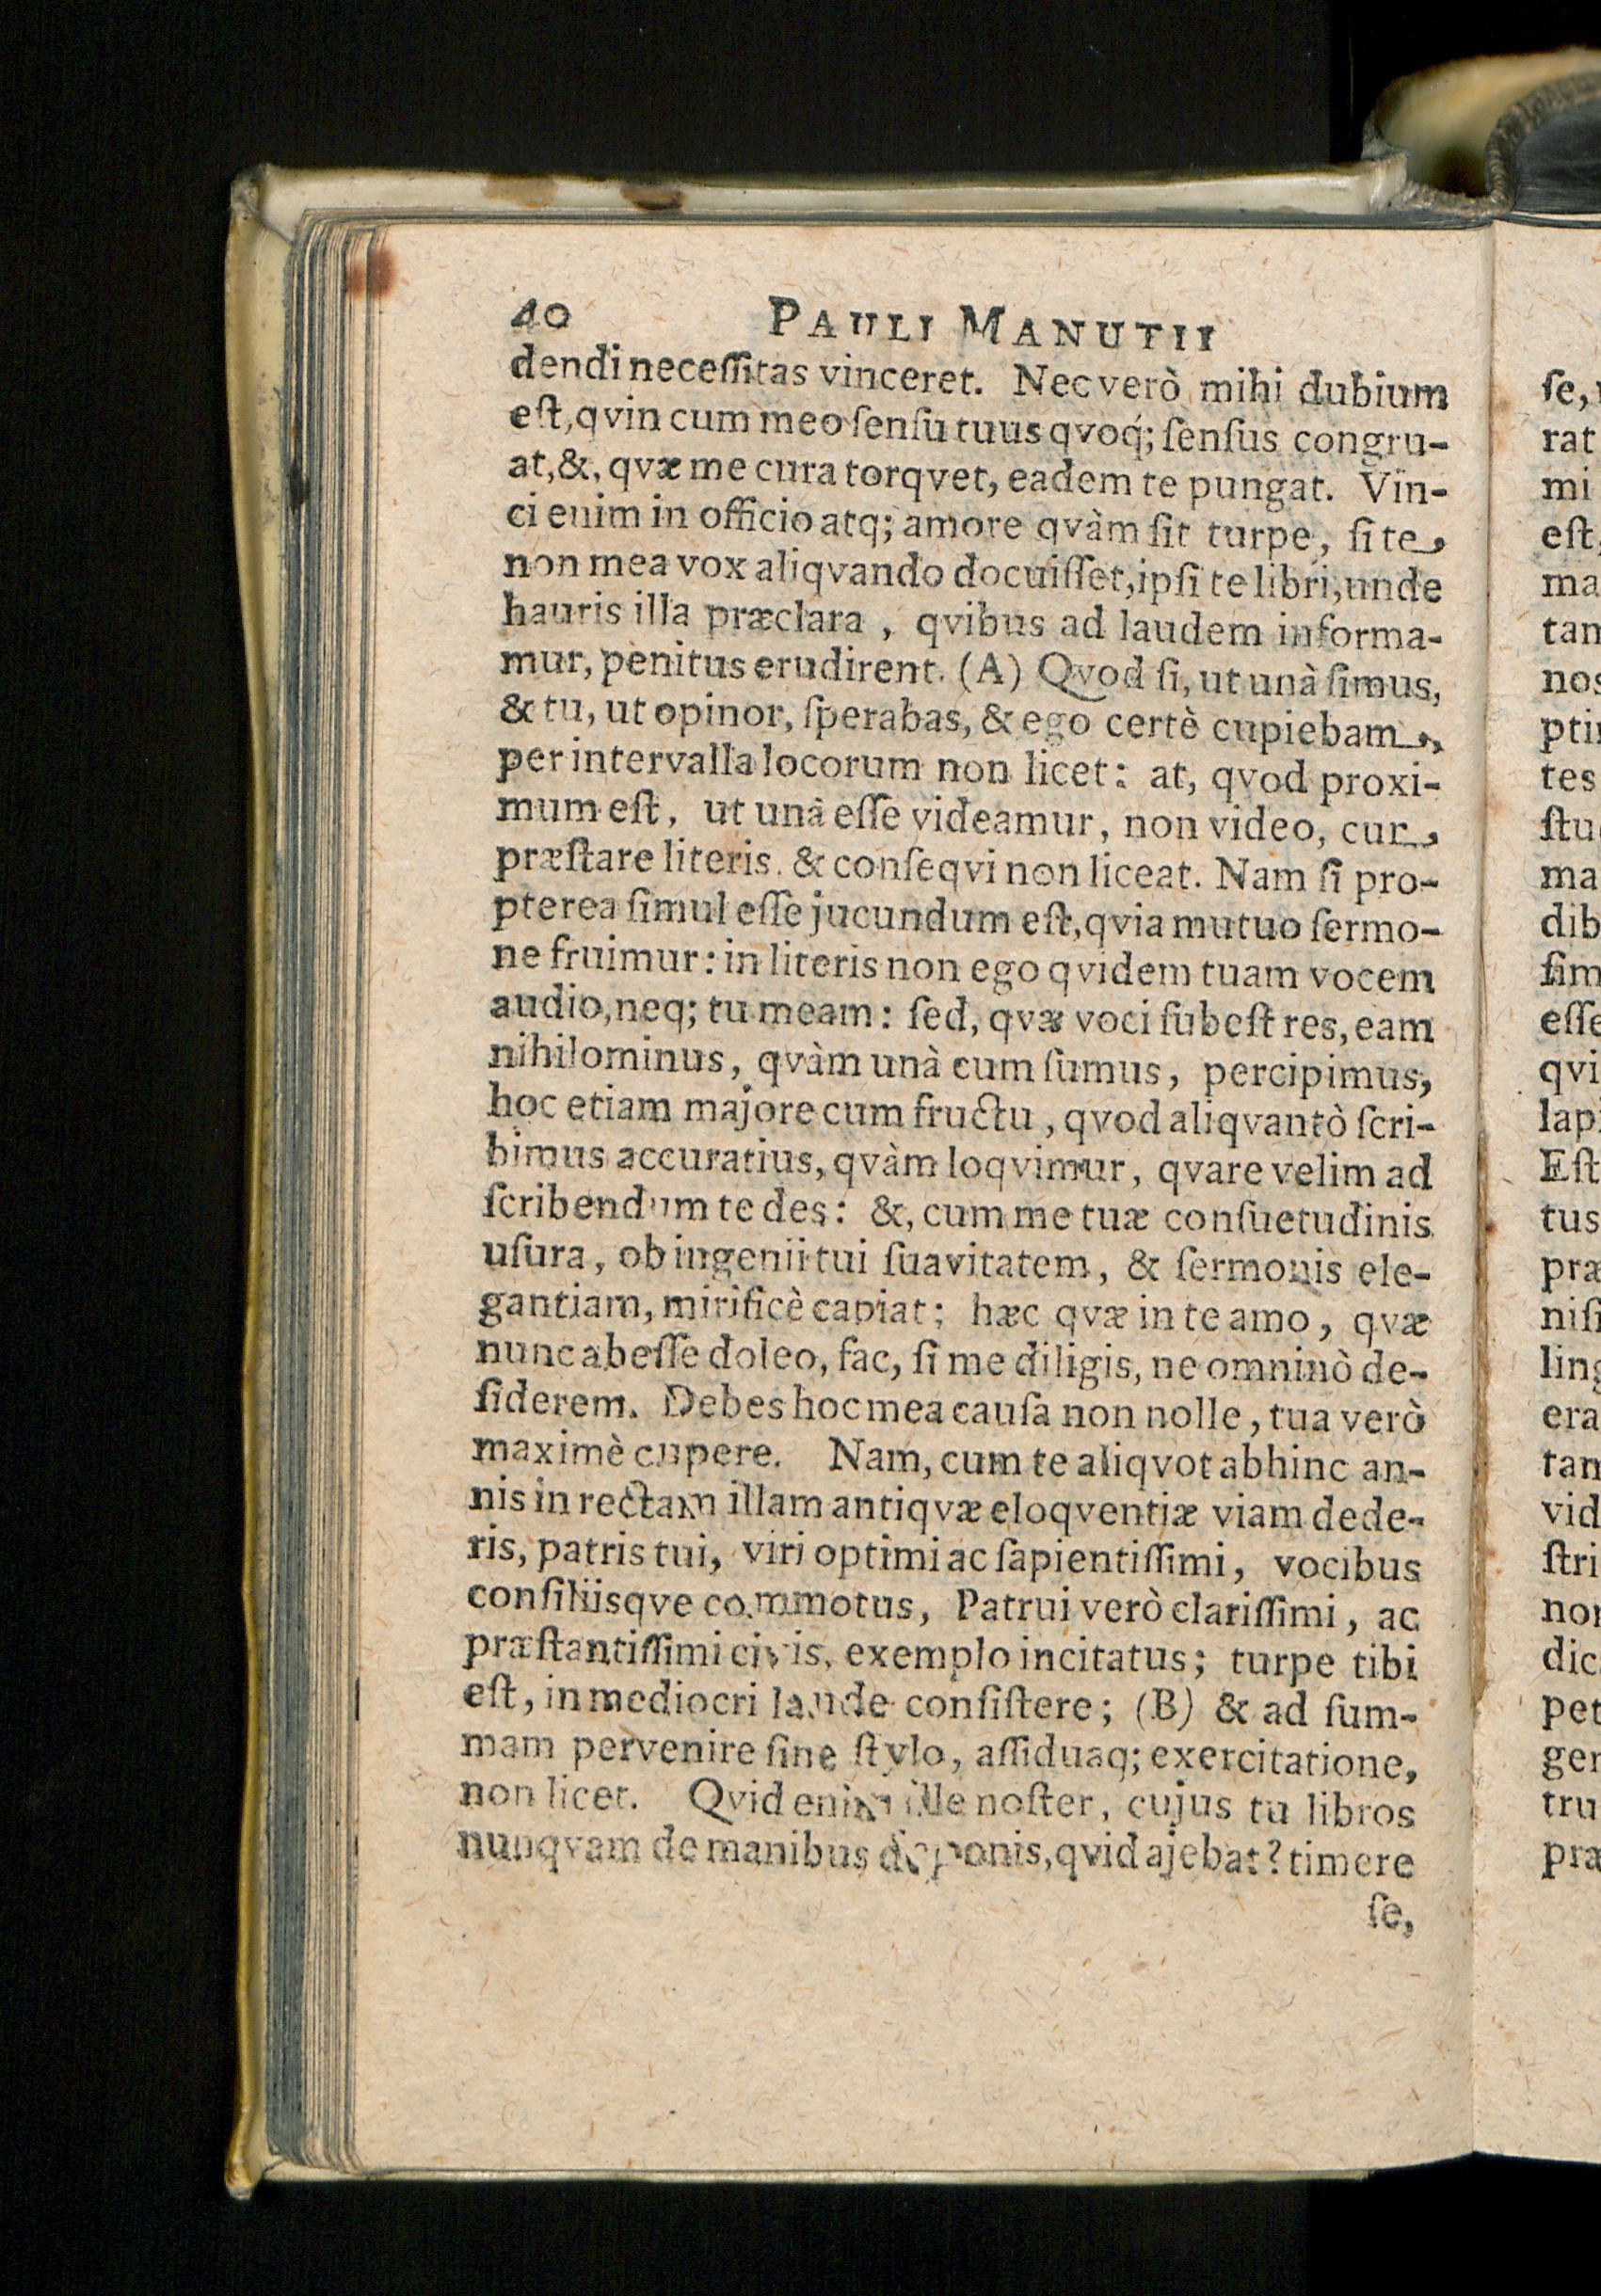 40 PAULI MANUTII
dendi neceſſitas vinceret. Nec verò mihi dubium
eſt, qvin cum meo ſenſu tuus qvoq́; ſenſus congru-
at, &, qvæ me cura torqvet, eadem te pungat. Vin-
ci enim in officio atq; amore qvàm ſit turpe, ſi te,
non mea vox aliqvando docuiſſet, ipſi te libri, unde
hauris illa præclara, qvibus ad laudem informa-
mur, penitus erudirent. (A) Qvod ſi, ut unà ſimus,
& tu, ut opinor, ſperabas, & ego certè cupiebam,
per intervalla locorum non licet: at, qvod proxi-
mum eſt, ut unà eſſe videamur, non video, cur,
præſtare literis. & conſeqvi non liceat. Nam ſi pro-
pterea ſimul eſſe jucundum eſt, qvia mutuo ſermo-
ne fruimur: in literis non ego qvidem tuam vocem
audio, neq; tu meam: ſed, qvæ voci ſubeſt res, eam
nihilominus, qvàm unà cum ſumus, percipimus,
hoc etiam majore cum fructu, qvod aliqvantò ſcri-
bimus accuratius, qvàm loqvimur, qvare velim ad
ſcribendum te des: &, cum me tuæ conſuetudinis
uſura, ob ingenii tui ſuavitatem, & ſermonis ele-
gantiam, mirificè capiat; hæc qvæ in te amo, qvæ
nunc abeſſe doleo, fac, ſi me diligis, ne omninò de-
ſiderem. Debes hoc mea cauſa non nolle, tua verò
maximè cupere. Nam, cum te aliqvot abhinc an-
nis in rectam illam antiqvæ eloqventiæ viam dede-
ris, patris tui, viri optimi ac ſapientiſſimi, vocibus
conſiliisqve commotus, Patrui verò clariſſimi, ac
præſtantiſſimi civis, exemplo incitatus; turpe tibi
eſt, in mediocri laude conſiſtere; (B) & ad ſum-
mam pervenire ſine ſtylo, aſſiduaq; exercitatione,
non licet. Qvid enim ille noſter, cujus tu libros
nunqvam de manibus deponis, qvid ajebat? timere
ſe,
ſe,
rat
mi
eſt,
ma
tam
nos
pti
tes
ſtu
ma
dib
ſim
eſſe
qvi
lap
Eſt
tus
præ
niſi
ling
era
tam
vid
ſtri
non
dic
pet
gen
tru
præ